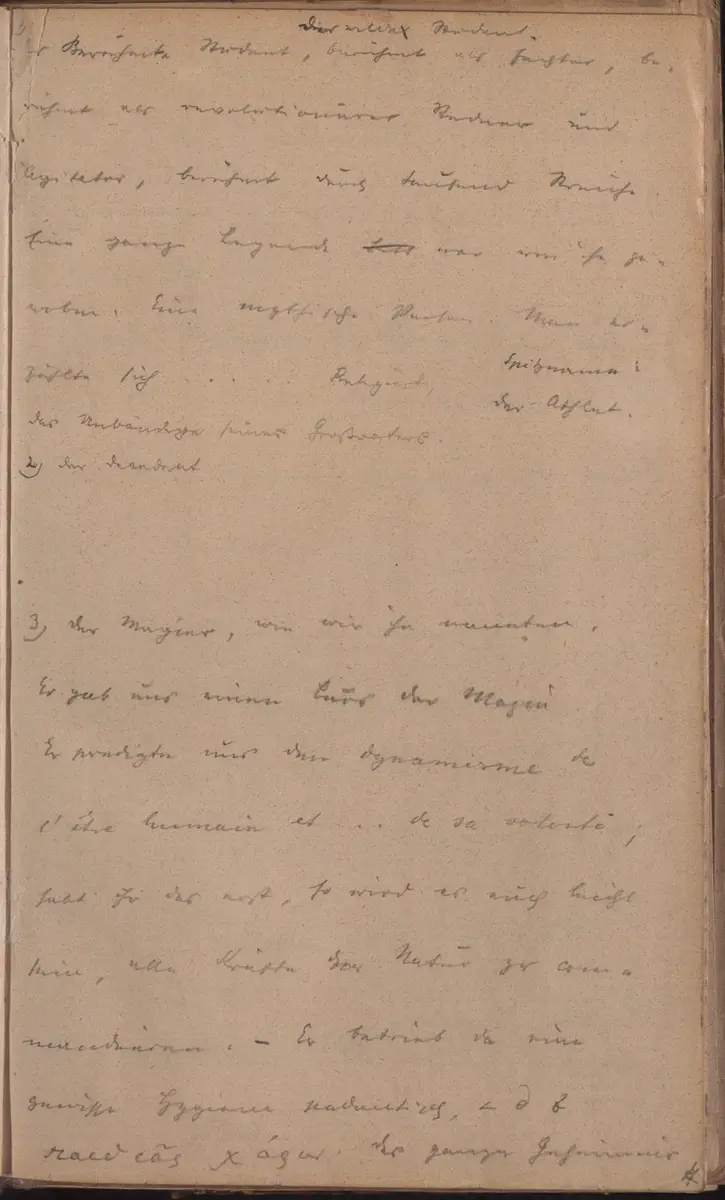 Der wilde Student.
Berühmte Student, berühmt als Fechter, be-
rühmt als revolutionärer Redner und
Agitator, berühmt durch tausend Streiche
Eine ganze Legende war um ihn ge-
woben. Eine mythische Person. Man er-
zählte sich . . . . . Relegiert,
Spitzname:
der Athlet.
das Unbändige seines Großvaters.
2) der decadent
3) der Magier, wie wir ihn nannten.
Er gab uns einen Curs der Magie
Er predigte uns den dynamisme de
l'être humain et .. de sa volonté;
habt ihr das erst, so wird es euch leicht
sein, alle Kräfte der Natur zu com-
mandieren. – Er betrieb da eine
gewisse Hygiene
das ganze Geheimnis